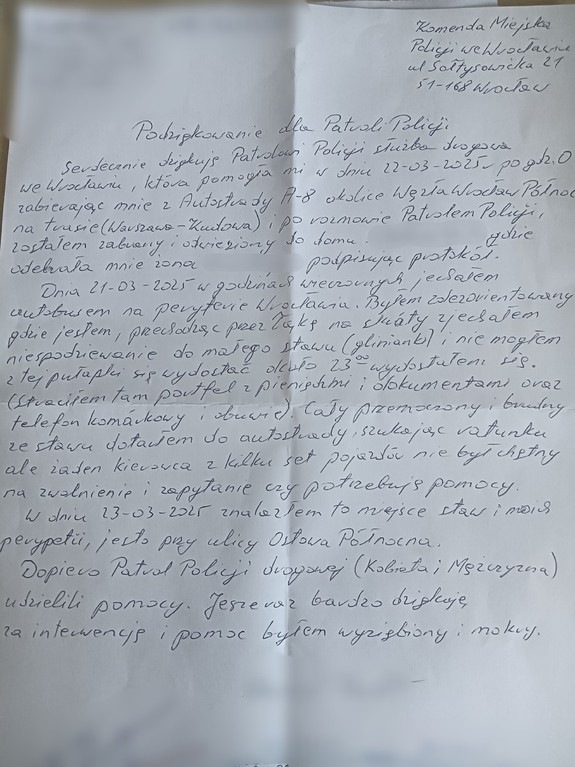 Komenda Miejska
Policji we Wrocławiu
ul Sołtysowicka 21
51-168 Wrocław
Podziękowanie dla Patroli Policji
Serdecznie dziękuję Patrolowi Policji służba drogowa
we Wrocławiu, która pomogła mi w dniu 22-03-2025r po godz. 0
zabierając mnie z Autostrady A-8 okolice Węzła Wrocław Północ
na trasie (Warszawa-Kudowa) i po rozmowie Patrolem Policji,
zostałem zabrany i odwieziony do domu. gdzie
odebrała mnie żona podpisując protokół.
Dnia 21-03-2025 w godzinach wieczornych jechałem
autobusem na peryferie Wrocławia. Byłem zdezorientowany
gdzie jestem, przechodząc przez łąkę na skróty zjechałem
niespodziewanie do małego stawu (glinianki) i nie mogłem
z tej pułapki się wydostać około 23⁰⁰ wydostałem się.
(straciłem tam portfel z pieniędzmi i dokumentami oraz
telefon komórkowy i obuwie). Cały przemoczony i brudny
ze stawu dotarłem do autostrady, szukając ratunku
ale żaden kierowca z kilku set pojazdów nie był chętny
na zwolnienie i zapytanie czy potrzebuję pomocy.
W dniu 23-03-2025 znalazłem to miejsce staw i moich
perypetii, jest to przy ulicy Osłowa Północna.
Dopiero Patrol Policji drogowej (Kobieta i Mężczyzna)
udzielili pomocy. Jeszcze raz bardzo dziękuję
za interwencję i pomoc byłem wyziębiony i mokry.